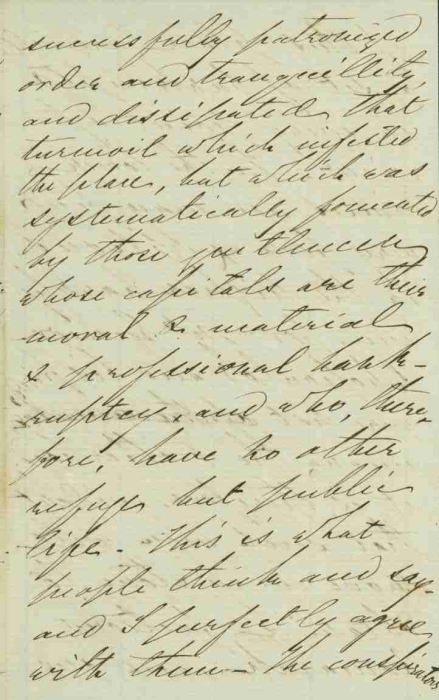 successfully patronized
order and tranquillity,
and dissipated that
turmoil which infested
the place, but which was
systematically fomented
by those gentlemen
whose capitals are their
moral & material
& professional bank-
ruptcy, and who, there-
fore, have no other
refuge but public
life - This is what
people think and say -
and I perfectly agree
with them - The conspirators